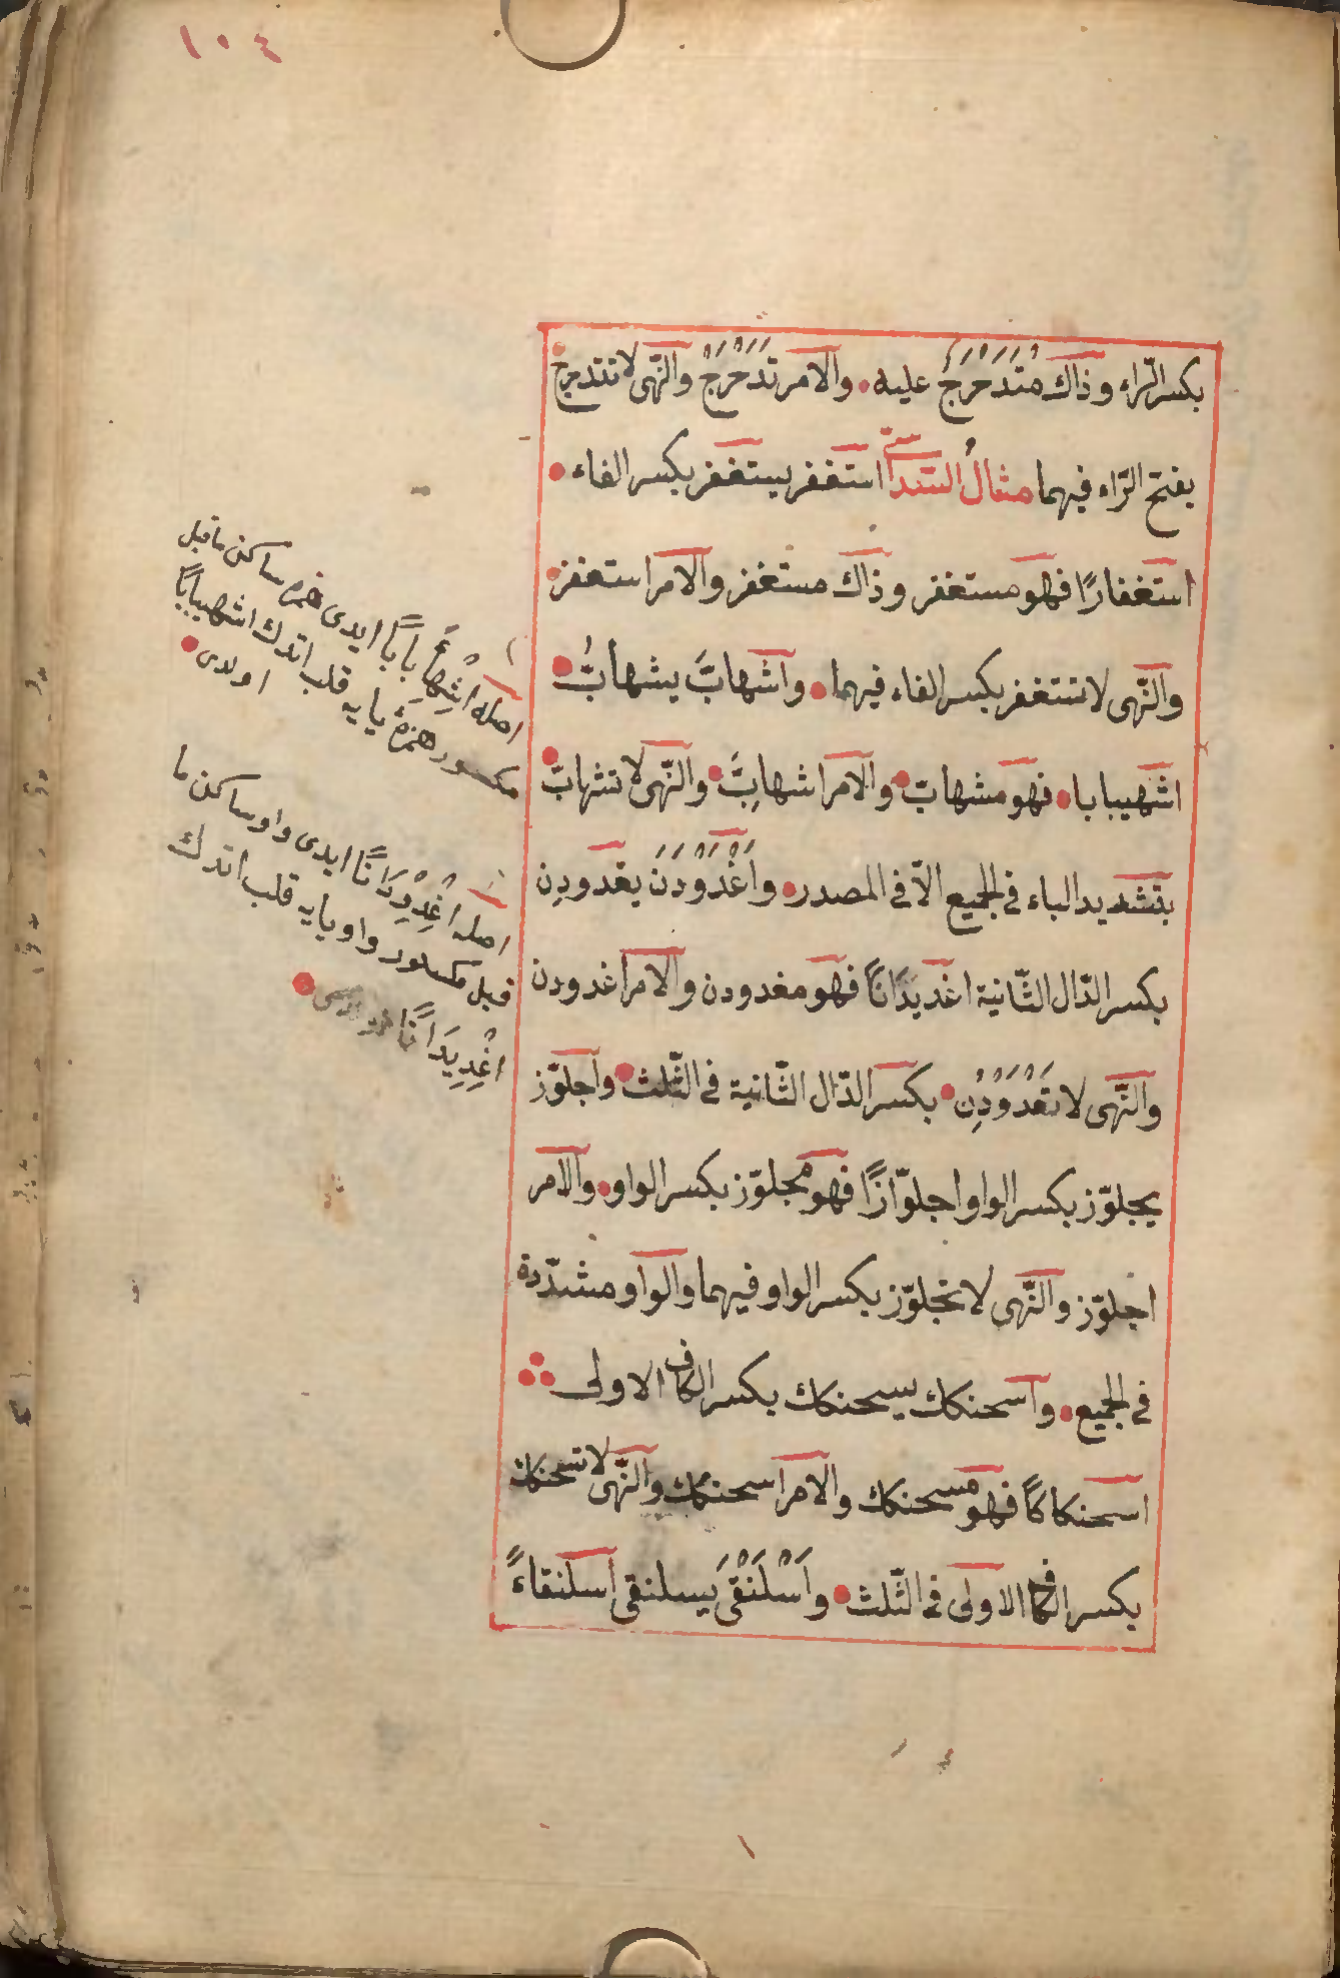 ١٠٤
بكسر الرّاء وذاك مُتَدَحْرَجٌ عليه والامر تَدَحْرَجْ والنّهى لا تتدحرج
بفتح الرّاء فيهما مثالُ السّداسىّ استغفر يستغفر بكسر الفاء
استغفارًا فهو مستغفر وذاك مستغفر والامر استغفر
والنّهى لا تستغفر بكسر الفاء فيهما واشهابَّ يشهابُّ
اشهيبابا فهو مشهابّ والامر اشهابِبّ والنّهى لا تشهابّ
بتشديد الباء فى الجميع الاّ فى المصدر واغْدَوْدَنَ يغدودِن
بكسر الدّال الثّانية اغديدَانًا فهو مغدودن والامر اغدودن
والنّهى لا تغْدَوْدِنْ بكسر الدّال الثّانية فى الثّلث واجلوّز
يجلوّز بكسر الواو اجلوّازًا فهو مجلوّز بكسر الواو والامر
اجلوّز والنّهى لا تجلوّز بكسر الواو فيهما والواو مشدّدة
فى الجميع واسحنكك يسحنكك بكسر الكاف الاولى
اسحنكاكًا فهو مسحنكك والامر اسحنكك والنّهى لا تسحنكك
بكسر الكاف الاولى فى الثّلث واَسْلَنْقَىَ يسلنقى اسلنقاءً
اصله اشْهِأْبابًا ايدى همزه ساكن ماقبل
مكسور همزهٔ يايه قلب اتدك اشهيبابًا
اولدى
اصله اغْدِوْدَانًا ايدى واو ساكن ما
قبل مكسور واو يايه قلب اتدك
اغْدِيدَانًا